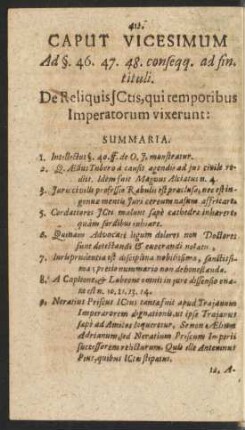 CAPUT VICESIMUM
Ad §. 46. 47. 48. conseqq. ad fin.
tituli.
De Reliquis JCtis, qui temporibus
Imperatorum vixerunt:
SUMMARIA.
1. Intellectus §. 40. ff. de O. J. monstratur.
2. Q. Ælius Tubero à causis agendis ad jus civile re-
diit. Idem fuit Magnus Alciatus n. 4.
3. Juris civilis professio Rabulis est præclusa, nec est in-
genua mentis Juri cereum nasum affricare.
5. Cordatiores JCti malunt sæpè cathedra inhærere
quàm sordibus
6. Quinam Advocati legum dolores non Doctores
sunt detestandi & execrandi
7. Jurisprudentia est disciplina nobilissima, sanctissi-
ma; pretio nummario non dehonestanda.
8. A Capitone, & Labeone omnis in jure dissensio ena-
ta est n. 10. 11. 13. 14.
9. Neratius Priscus JCtus tanta fuit apud Trajanum
Imperatorem dignationis, ut ipse Trajanus
sæpè ad Amicos loqueretur. Se non Ælium
Adrianum, sed Neratium Priscum Imperii
successorem relicturum. Quis ille Antoninus
Pius, quibus JCtis stipatus.
12. A-